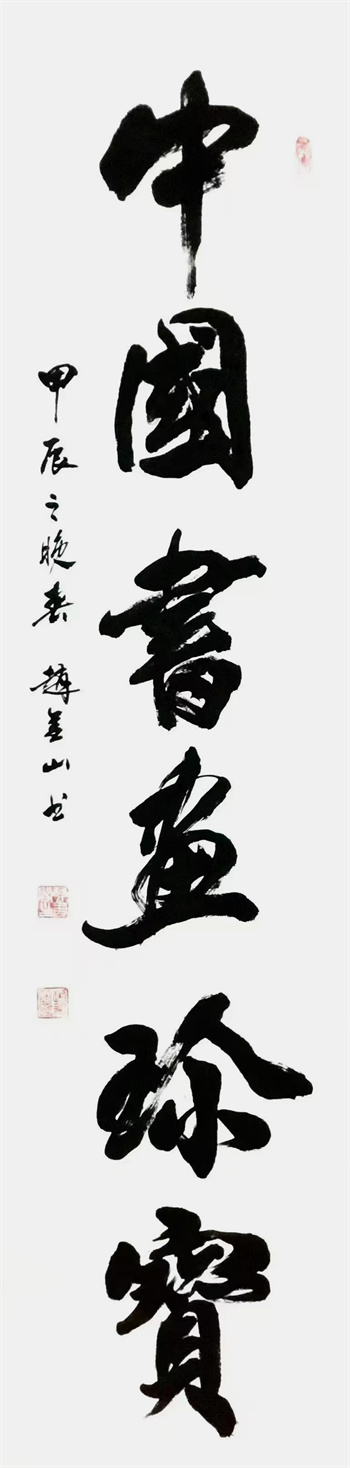 中國書畫珍寶
甲辰之晚春 趙金山书